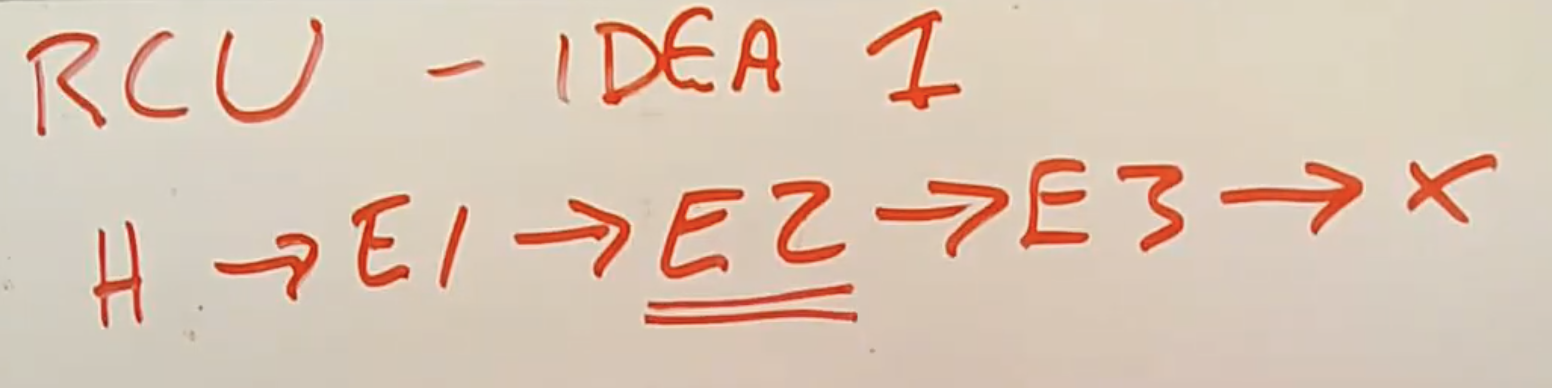 RCU - IDEA 1
H → E1 → E2 → E3 → X